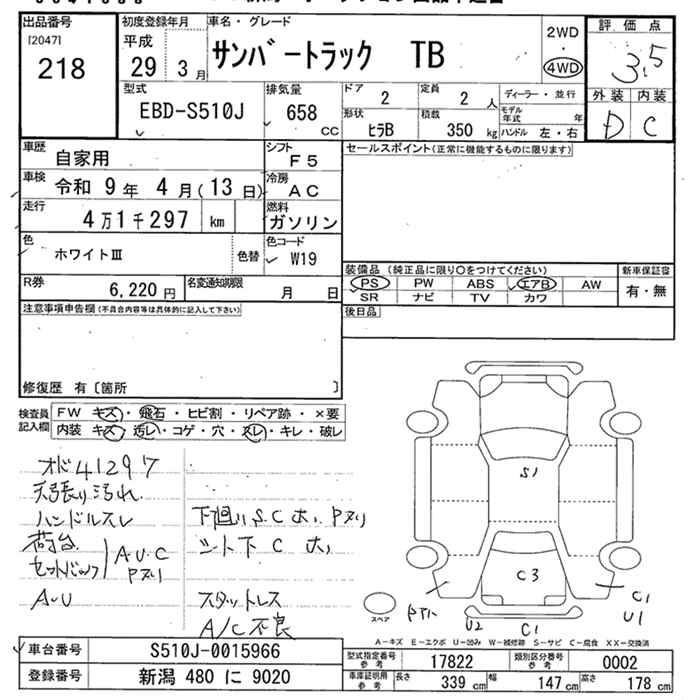 出品番号
[2047]
218
初度登録年月
平成
29 3月
車名・グレード
サンバートラック TB
2WD
・
4WD
評価点
3.5
外装 内装
D C
型式
EBD-S510J
排気量
658
CC
ドア
2
定員
2 人
ディーラー・並行
モデル年式 年
形状
ヒラB
積載
350 kg
ハンドル 左・右
車歴
自家用
シフト
F5
車検
令和 9年 4月(13日)
冷房
AC
走行
4万1千297 km
燃料
ガソリン
色
ホワイトⅢ
色替
色コード
W19
R券
6,220円
名変通知期限
月 日
セールスポイント(正常に機能するものに限ります)
装備品 (純正品に限り○をつけてください)
PS PW ABS エアB AW
SR ナビ TV カワ
新車保証書
有・無
後日品
注意事項申告欄(不具合内容等は具体的に記入して下さい)
修復歴 有〔箇所 〕
検査員記入欄
FW キズ・飛石・ヒビ割・リペア跡・×要
内装 キズ・汚レ・コゲ・穴・スレ・キレ・破レ
オド41297
天張り汚れ
ハンドルスレ
荷台
A.U.C
Pヌリ
A・U
下回りS.C大、Pヌリ
シート下C大
スタットレス
A/C不良
S1
C3
C1
U1
U2
C1
スペア
A-キズ E-エクボ U-凹み W-補修跡 S-サビ C-腐食 XX-交換済
車台番号
S510J-0015966
登録番号
新潟 480 に 9020
型式指定番号
参考
17822
類別区分番号
参考
0002
車庫証明用
参考
長さ
339 cm
幅
147 cm
高さ
178 cm